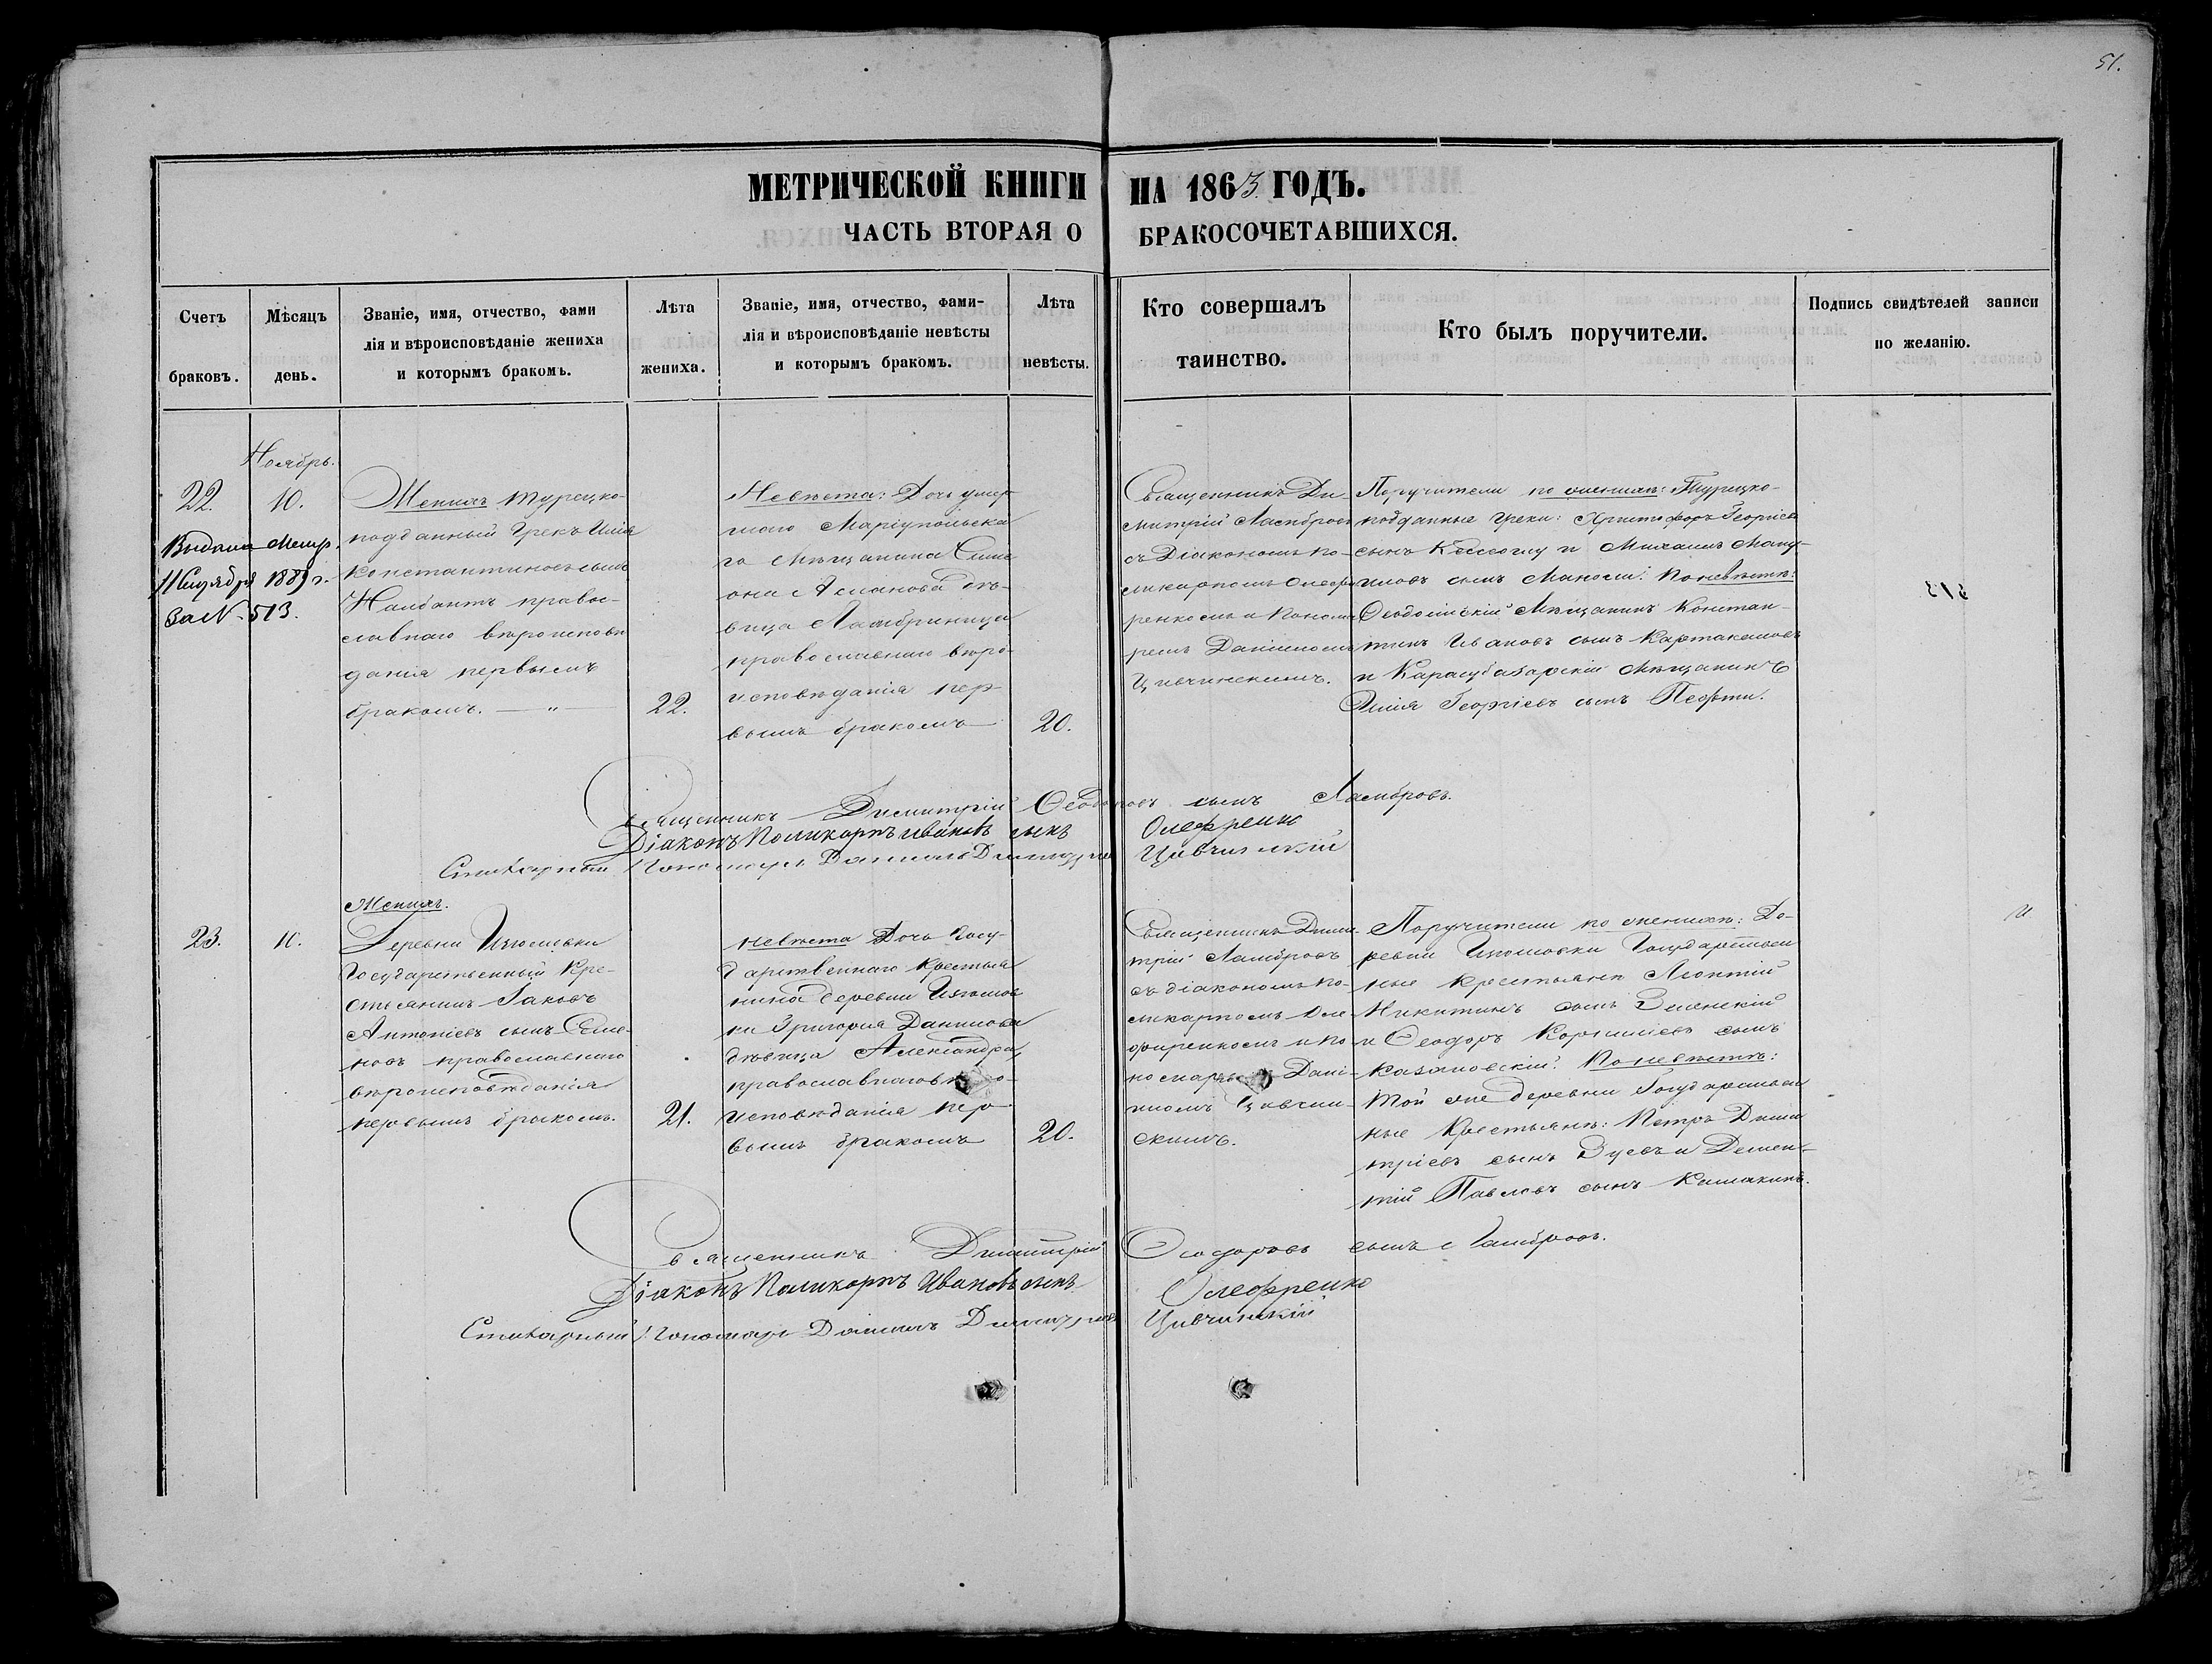 51.
МЕТРИЧЕСКОЙ КНИГИ НА 1863 ГОДЪ.
ЧАСТЬ ВТОРАЯ О БРАКОСОЧЕТАВШИХСЯ.
Счетъ
браковъ.
Мѣсяцъ
день.
Званіе, имя, отчество, фами
лія и вѣроисповѣданіе жениха
и которымъ бракомъ.
Лѣта
жениха.
Званіе, имя, отчество, фами-
лія и вѣроисповѣданіе невѣсты
и которымъ бракомъ.
Лѣта
невѣсты.
Кто совершалъ
таинство.
Кто былъ поручители.
Подпись свидѣтелей записи
по желанію.
Ноябрь.
22.
10.
Выдана Метр.
1889 г.
За N. 513.
Женихъ Турецко-
подданный Грекъ Илія
Константиновъ сынъ
правос-
лавнаго вѣроисповѣ
данія первымъ
бракомъ. — " —
22.
Невѣста: Дочь умер
шаго Маріупольска
го Мѣщанина
дѣ-
вица
православнаго вѣро-
исповѣданія пер-
вымъ бракомъ
20.
Священникъ Ди
митрій Ламбровъ
съ Діакономъ По-
ликарпомъ Олеф
ренкомъ и Понома
ремъ Даніиломъ
Цивчинскимъ.
Поручители по женихѣ: Турецко-
подданные греки: Христофоръ Георгіевъ
сынъ и Михаилъ
сынъ По невѣстѣ:
Ѳеодосійскій Мѣщанинъ Констан-
тинъ Ивановъ сынъ
и Карасубазарскій Мѣщанинъ
Илія Георгіевъ сынъ
Священникъ Димитрій Ѳеодоровъ сынъ Ламбровъ.
Діаконъ Поликарпъ Ивановъ сынъ Олефренко
Стихарный Пономарь Даніилъ Цивчинскій
23.
10.
Женихъ.
Деревни Изюмовки
Государственный Кре-
стьянинъ Іаковъ
Антоніевъ сынъ Семе-
новъ православнаго
вѣроисповѣданія
первымъ бракомъ.
21.
Невѣста Дочь Госу-
дарственнаго Крестья
нина деревни Изюмов
ки Григорія Данилова
дѣвица Александра,
православнаго
исповѣданія пер
вымъ бракомъ
20.
Священникъ Дими
трій Ламбровъ
съ діакономъ По-
ликарпомъ Оле
френкомъ и По
Дані-
иломъ Цивчин
скимъ.
Поручители по женихѣ: Де-
ревни Изюмовки Государствен
ные крестьяне Леонтій
Никитинъ сынъ
и Ѳеодоръ Корниліевъ сынъ
Казановскій. По невѣстѣ:
Той же деревни Государствен
ные Крестьяне: Петръ Дими
тріевъ сынъ и Демен-
тій Павловъ сынъ
Священникъ Димитрій Ѳеодоровъ сынъ Ламбровъ.
Діаконъ Поликарпъ Ивановъ сынъ Олефренко
Стихарный Пономарь Даніилъ Цивчинскій